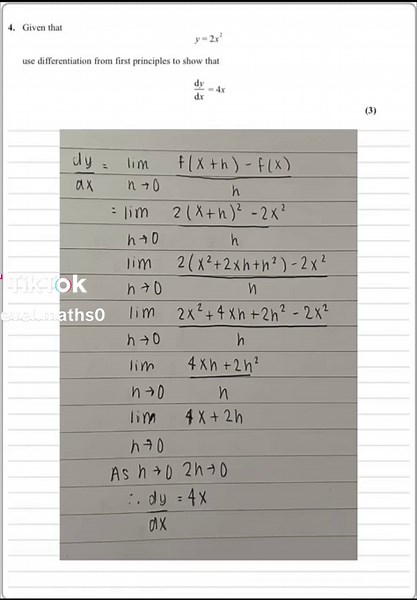 4. Given that
y = 2x²
use differentiation from first principles to show that
dy/dx = 4x
(3)
dy/dx = lim h→0 f(x+h) - f(x) / h
= lim h→0 2(x+h)² - 2x² / h
lim h→0 2(x²+2xh+h²) - 2x² / h
lim h→0 2x²+4xh+2h² - 2x² / h
lim h→0 4xh+2h² / h
lim h→0 4x+2h
As h→0 2h→0
∴ dy/dx = 4x
TikTok